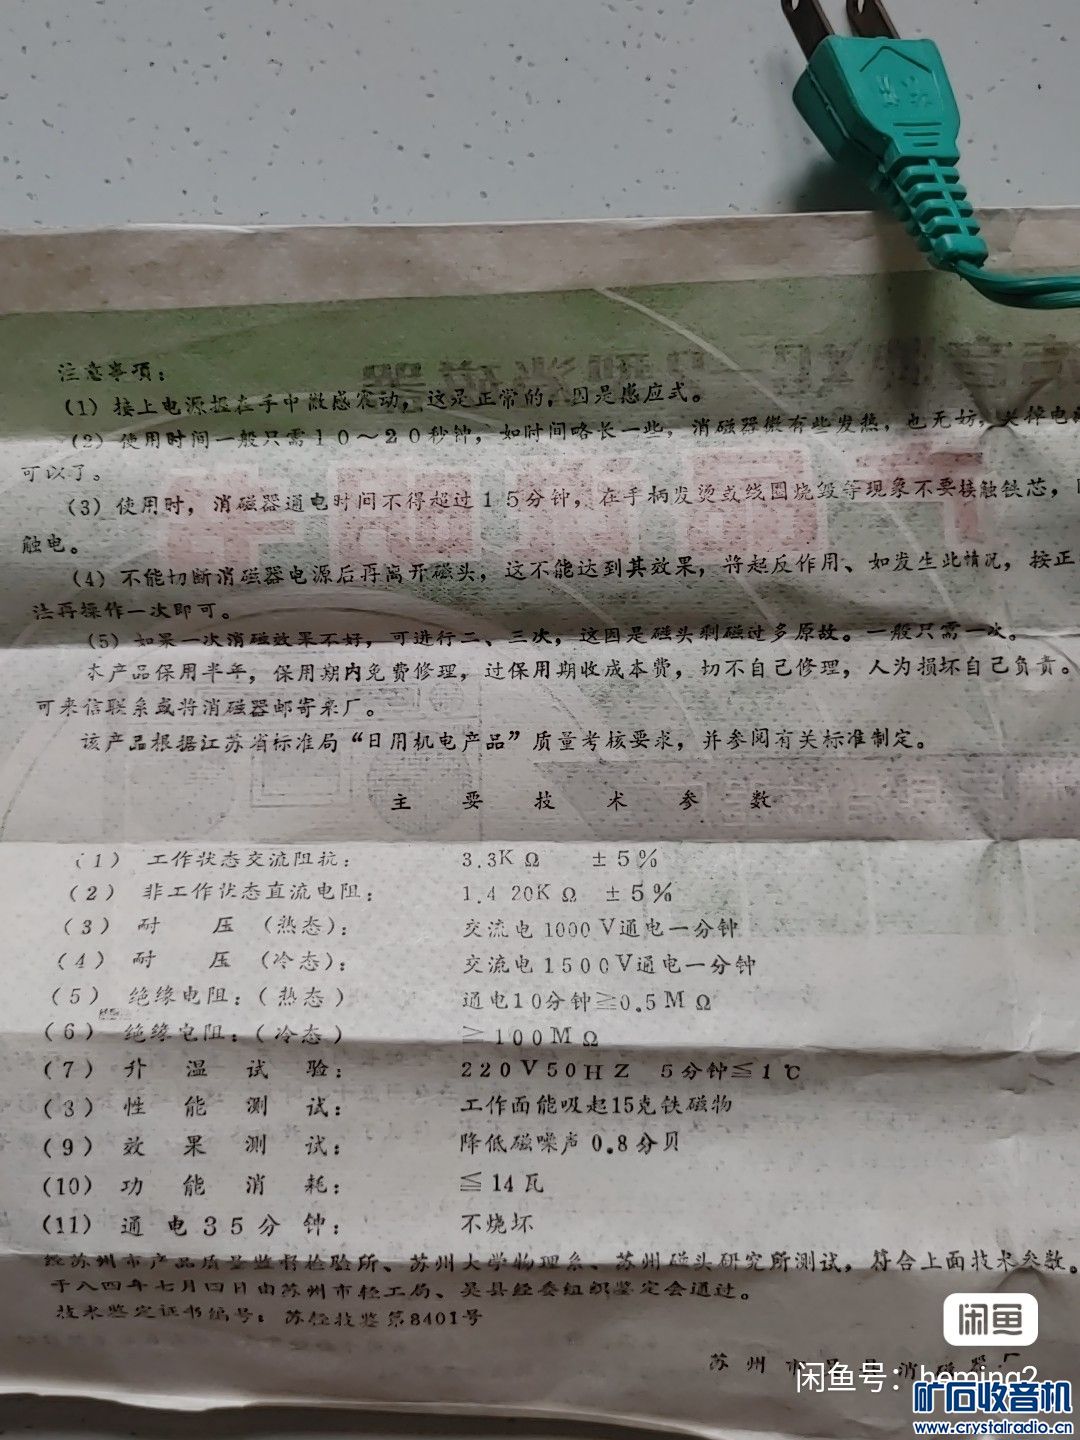 注意事项：
（1）接上电源极在手中微感震动，这是正常的，因是感应式。
（2）使用时间一般只需10～20秒钟，如时间略长一些，消磁器微有些发热，也无妨，关掉电
可以了。
（3）使用时，消磁器通电时间不得超过15分钟，在手柄发烫或线圈烧毁等现象不要接触铁芯，
触电。
（4）不能切断消磁器电源后再离开磁头，这不能达到其效果，将起反作用、如发生此情况，按正
法再操作一次即可。
（5）如果一次消磁效果不好，可进行二、三次，这因是磁头剩磁过多原故。一般只需一次。
本产品保用半年，保用期内免费修理，过保用期收成本费，切不自己修理，人为损坏自己负责。
可来信联系或将消磁器邮寄来厂。
该产品根据江苏省标准局“日用机电产品”质量考核要求，并参阅有关标准制定。
主要技术参数
（1）工作状态交流阻抗： 3.3KΩ ±5%
（2）非工作状态直流电阻： 1.420KΩ ±5%
（3）耐 压（热态）： 交流电1000V通电一分钟
（4）耐 压（冷态）： 交流电1500V通电一分钟
（5）绝缘电阻：（热态） 通电10分钟≧0.5MΩ
（6）绝缘电阻：（冷态） ≧100MΩ
（7）升温试验： 220V50HZ 5分钟≦1℃
（8）性能测试： 工作面能吸起15克铁磁物
（9）效果测试： 降低磁噪声0.8分贝
（10）功能消耗： ≦14瓦
（11）通电35分钟： 不烧坏
经苏州市产品质量监督检验所、苏州大学物理系、苏州磁头研究所测试，符合上面技术参数。
于八四年七月四日由苏州市轻工局、吴县经委组织鉴定会通过。
技术鉴定证书编号：苏轻技鉴第8401号
苏州市吴县消磁器厂
闲鱼
闲鱼号：heming2
矿石收音机
www.crystalradio.cn